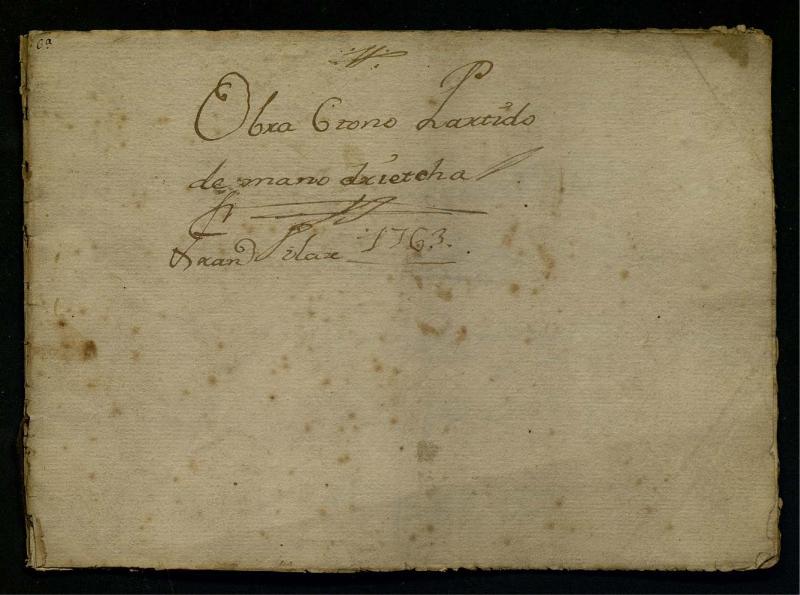 Oª
Obra 6 tono Partido
de mano drietcha
Fran.co Vilar 1763.